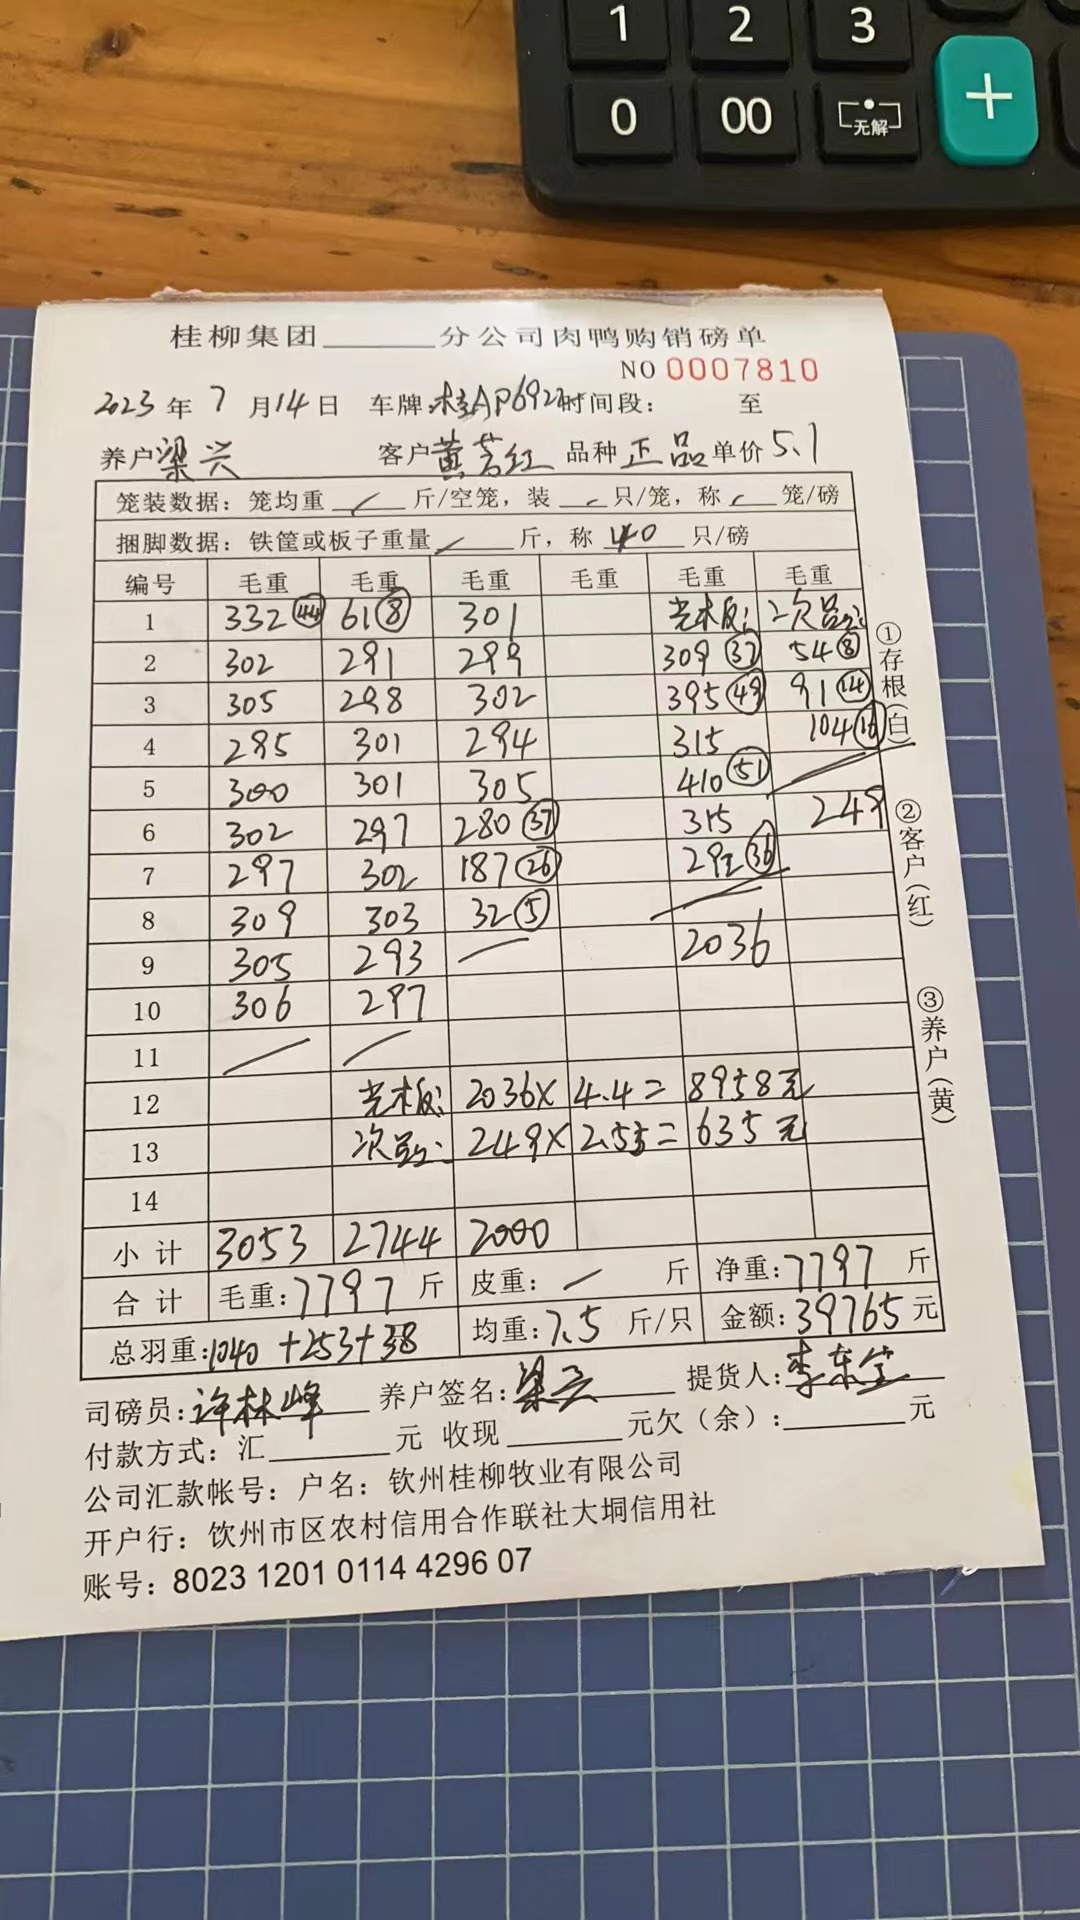 1 2 3
0 00 无解 +
桂柳集团________分公司肉鸭购销磅单
NO 0007810
2023 年 7 月 14 日 车牌: 桂AP692 时间段: 至
养户 梁兴 客户 黄茗红 品种 正品 单价 5.1
笼装数据: 笼均重 / 斤/空笼, 装 / 只/笼, 称 / 笼/磅
捆脚数据: 铁筐或板子重量 / 斤, 称 40 只/磅
编号 毛重 毛重 毛重 毛重 毛重 毛重
1 332 (44) 61 (8) 301 光木板: 次品:
2 302 291 299 309 (37) 54 (8)
3 305 298 302 395 (49) 91 (14)
4 295 301 294 315 104 (16)
5 300 301 305 410 (51)
6 302 297 280 (37) 315 249
7 297 302 187 (26) 292 (36)
8 309 303 32 (5)
9 305 293 / 2036
10 306 297
11 / /
12 光木板: 2036× 4.4= 8958元
13 次品: 249× 2.55= 635元
14
小计 3053 2744 2000
合计 毛重: 7797 斤 皮重: / 斤 净重: 7797 斤
总羽重: 1040 +253+38 均重: 7.5 斤/只 金额: 39765 元
司磅员: 许林峰 养户签名: 梁兴 提货人: 李东
付款方式: 汇________元 收现________元欠（余）:________元
公司汇款帐号: 户名: 钦州桂柳牧业有限公司
开户行: 钦州市区农村信用合作联社大垌信用社
账号: 8023 1201 0114 4296 07
①存根(白) ②客户(红) ③养户(黄)